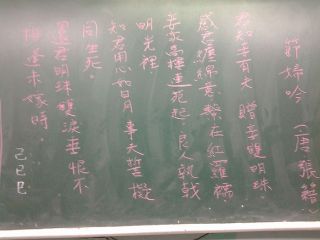 節婦吟 (唐 張籍)
君知妾有夫 贈妾雙明珠。
感君纏綿意 繫在紅羅襦
妾家高樓連苑起 良人執戟
明光裡
知君用心如日月 事夫誓擬
同生死。
還君明珠雙淚垂 恨不
相逢未嫁時。